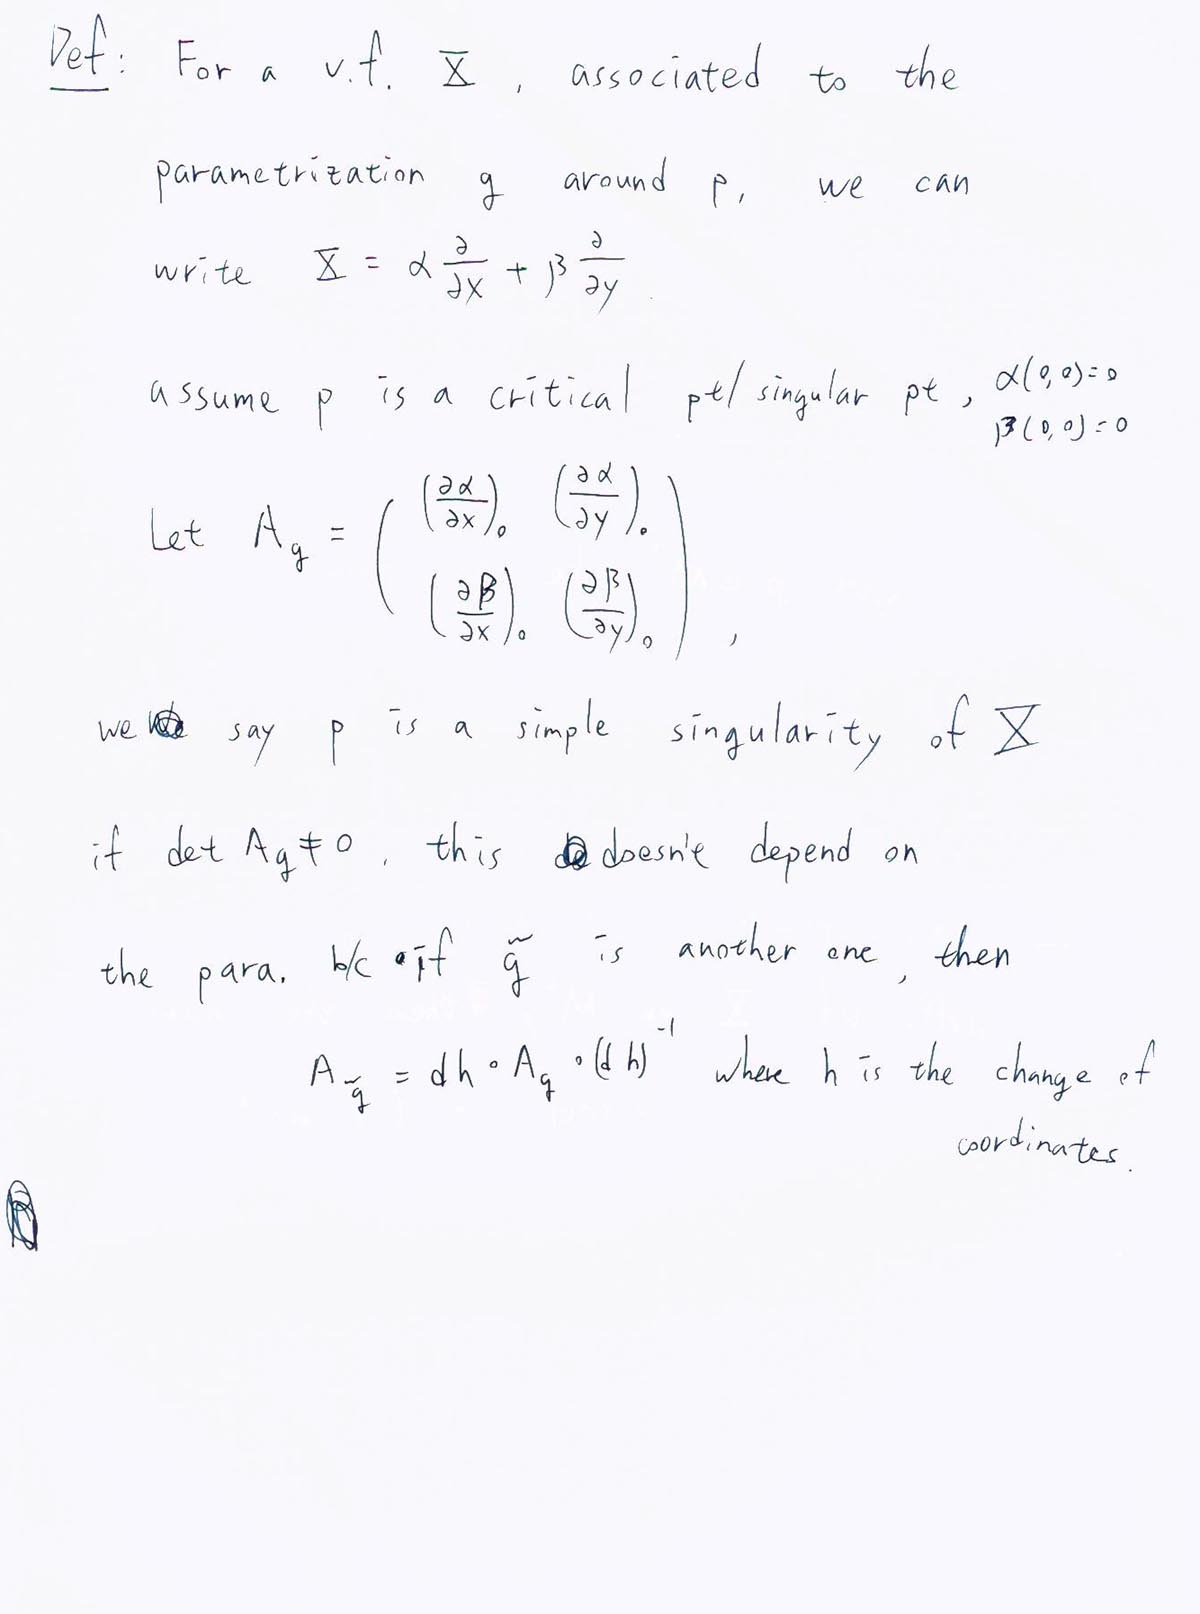 Def: For a v.f. X, associated to the
parametrization g around p, we can
write X = α ∂/∂x + β ∂/∂y.
assume p is a critical pt/singular pt, α(0,0)=0
β(0,0)=0
Let A_g = ( (∂α/∂x)₀ (∂α/∂y)₀
(∂β/∂x)₀ (∂β/∂y)₀ ),
we say p is a simple singularity of X
if det A_g ≠ 0, this doesn't depend on
the para. b/c if g̃ is another one, then
A_g̃ = dh ∘ A_g ∘ (dh)⁻¹ where h is the change of
coordinates.